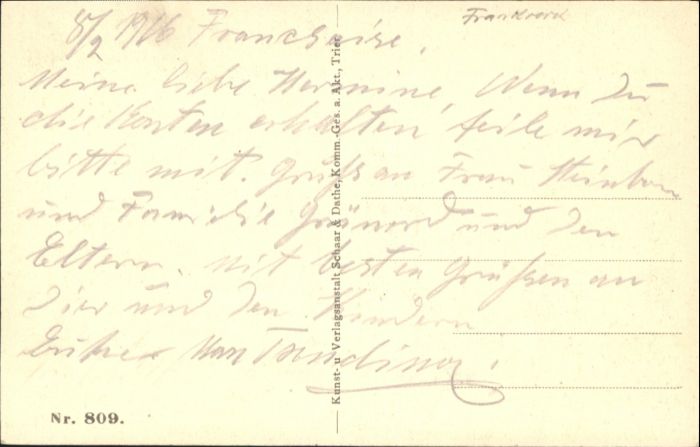 8/2 1916
Frankreich
Meine liebe Hermine, Wenn Du
die Karten erhalten teile mir
bitte mit. Gruß an Frau
und Familie und den
Eltern. mit besten Grüßen an
Dir und den Kindern
Kunst- u Verlagsanstalt Schaar & Dathe, Komm.-Ges. a. Akt., Trier.
Nr. 809.